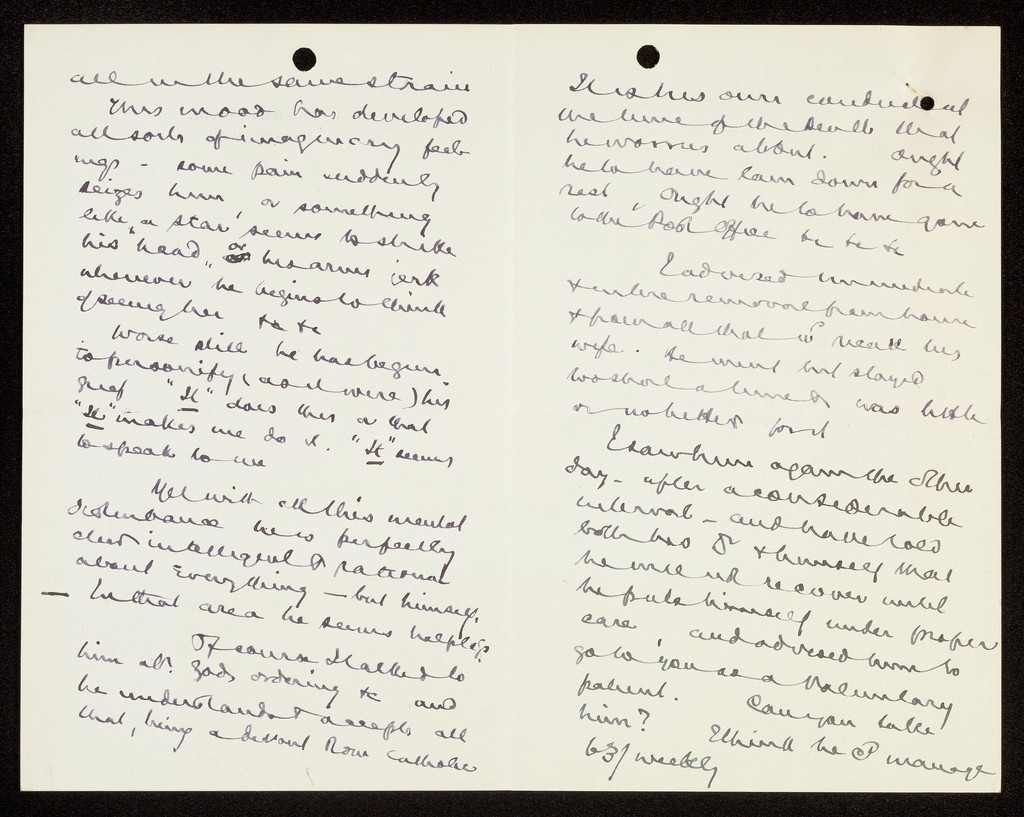 all in the same strain
This mood has developed
all sorts of imaginary feel-
ings - some pain suddenly
seizes him, or something
like "a star seems to strike
his head", or his arms jerk
whenever he begins to think
of seeing her &c &c
Worse still he has begun
to personify, (as it were) his
grief "It" does this or that
"It" makes me do it. "It" seems
to speak to me
Yet with all this mental
disturbance he is perfectly
clear intelligent & rational
about Everything - but himself.
— In that area he seems helpless.
Of course I talked to
him abt. Gods ordering &c and
he understands & accepts all
that, being a devout Rom Catholic
It is his own conduct at
the time of the death that
he worries about. Ought
he to have lain down for a
rest, Ought he to have gone
to the Post Office &c &c &c
I advised immediate
& entire removal from home
& from all that is near his
wife. He went but stayed
too short a time & was little
or no better for it
I saw him again the other
day - after a considerable
interval - and have told
both his Dr & himself that
he will not recover until
he puts himself under proper
care, and advised him to
go to you as a Voluntary
patient. Can you take
him? I think he cd manage
63/ weekly